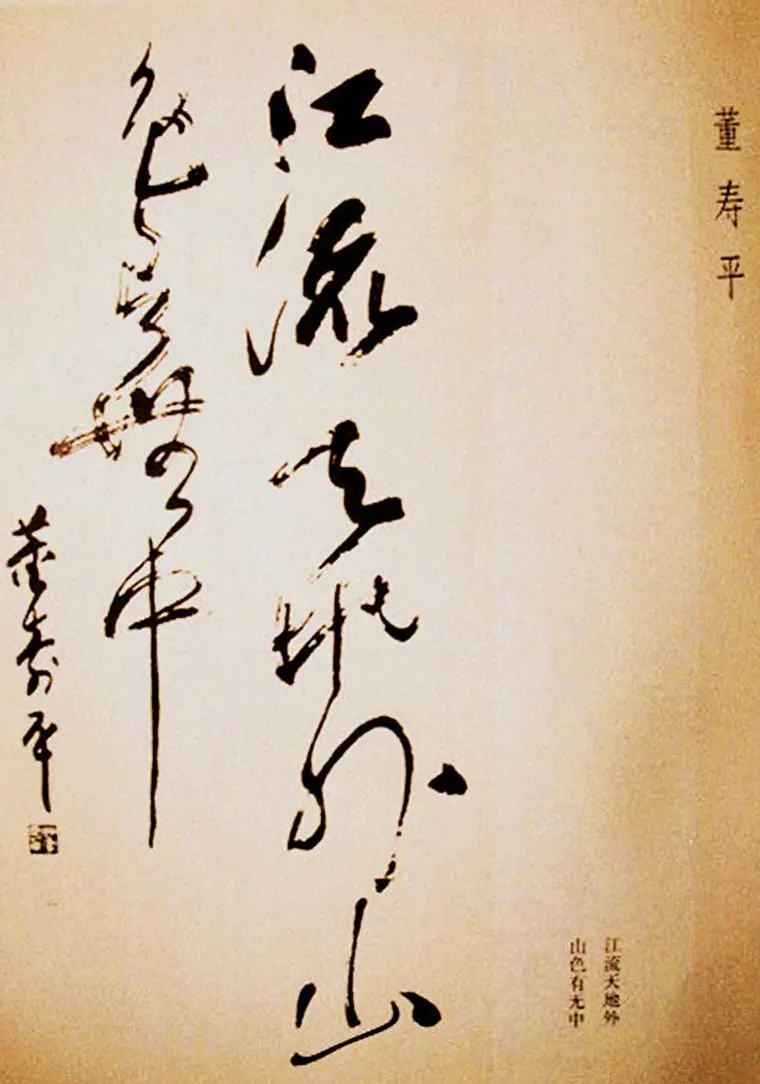 董寿平
江流天地外山
色有無中
董壽平
江流天地外
山色有无中